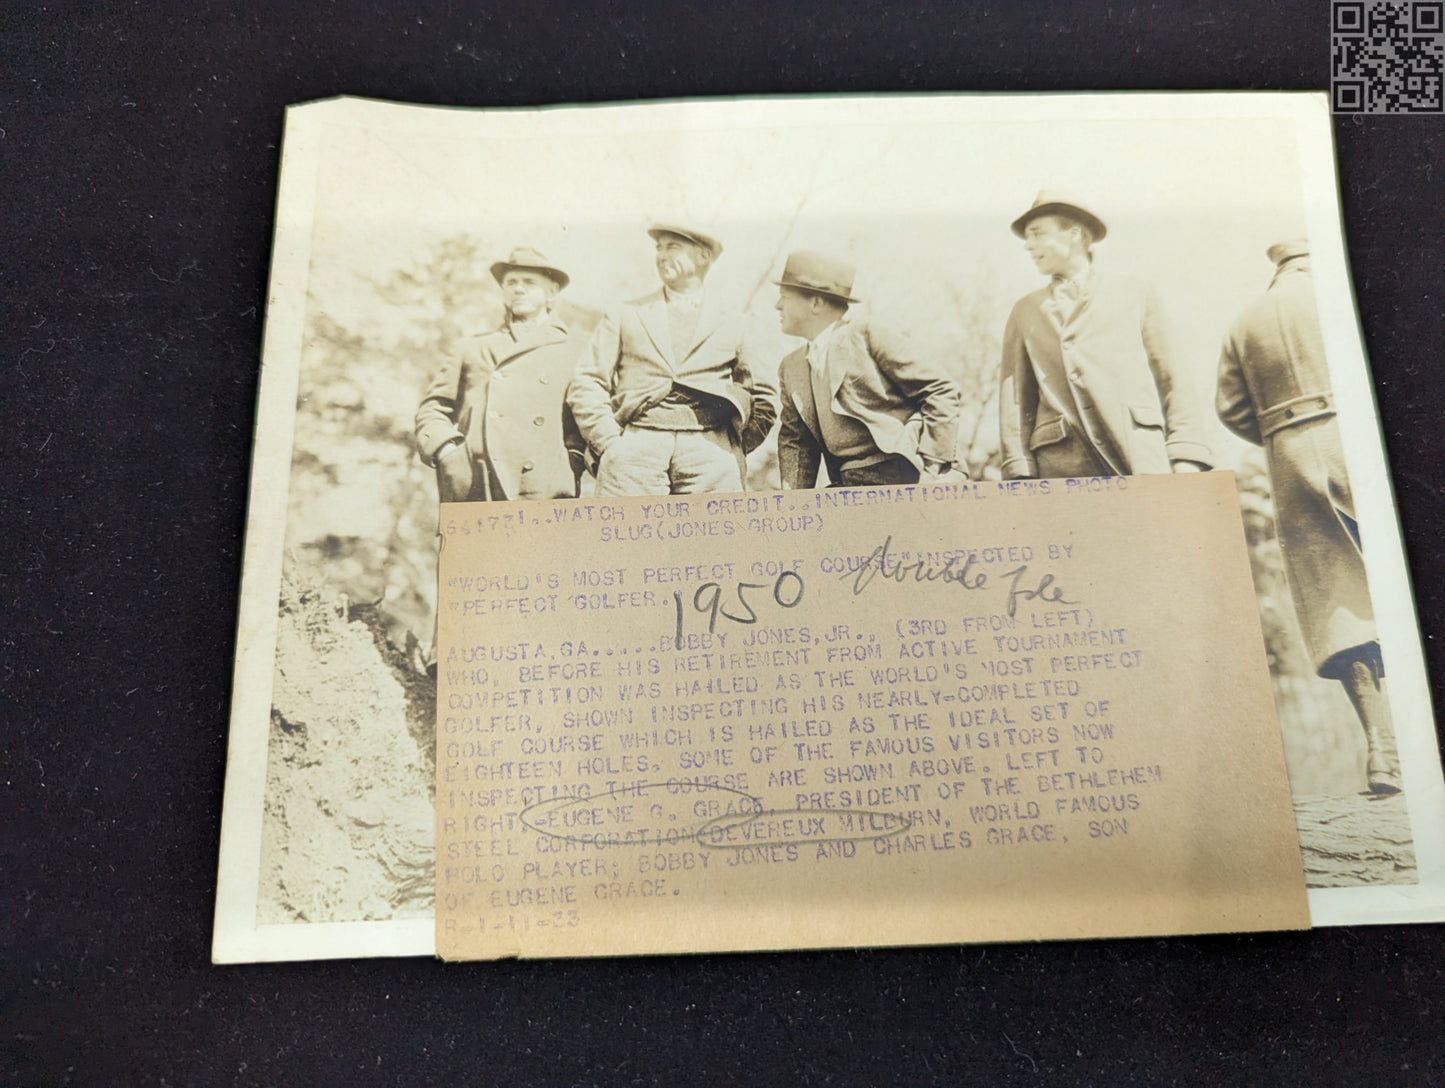 ..WATCH YOUR CREDIT..INTERNATIONAL NEWS PHOTO
SLUG(JONES GROUP)
"WORLD'S MOST PERFECT GOLF COURSE" INSPECTED BY
"PERFECT GOLFER."
1950
double
AUGUSTA,GA.....BOBBY JONES,JR., (3RD FROM LEFT)
WHO, BEFORE HIS RETIREMENT FROM ACTIVE TOURNAMENT
COMPETITION WAS HAILED AS THE WORLD'S MOST PERFECT
GOLFER, SHOWN INSPECTING HIS NEARLY-COMPLETED
GOLF COURSE WHICH IS HAILED AS THE IDEAL SET OF
EIGHTEEN HOLES. SOME OF THE FAMOUS VISITORS NOW
INSPECTING THE COURSE ARE SHOWN ABOVE. LEFT TO
RIGHT,-EUGENE G. GRACE, PRESIDENT OF THE BETHLEHEM
STEEL CORPORATION;DEVEREUX MILBURN, WORLD FAMOUS
POLO PLAYER; BOBBY JONES AND CHARLES GRACE, SON
OF EUGENE GRACE.
R-1-11-33